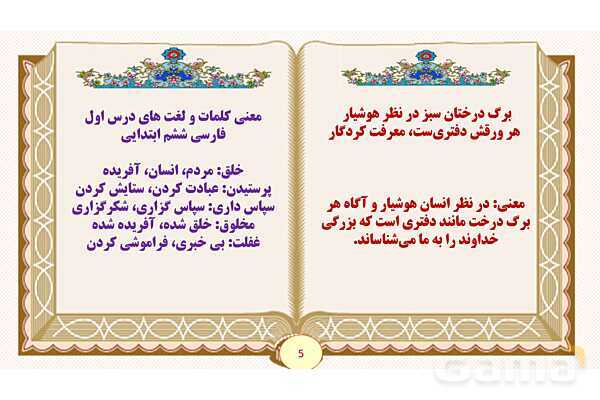 برگ درختان سبز در نظر هوشیار
هر ورقش دفتری‌ست، معرفت کردگار
معنی: در نظر انسان هوشیار و آگاه هر
برگ درخت مانند دفتری است که بزرگی
خداوند را به ما می‌شناساند.
معنی کلمات و لغت های درس اول
فارسی ششم ابتدایی
خلق: مردم، انسان، آفریده
پرستیدن: عبادت کردن، ستایش کردن
سپاس داری: سپاس گزاری، شکرگزاری
مخلوق: خلق شده، آفریده شده
غفلت: بی خبری، فراموشی کردن
5
Gama